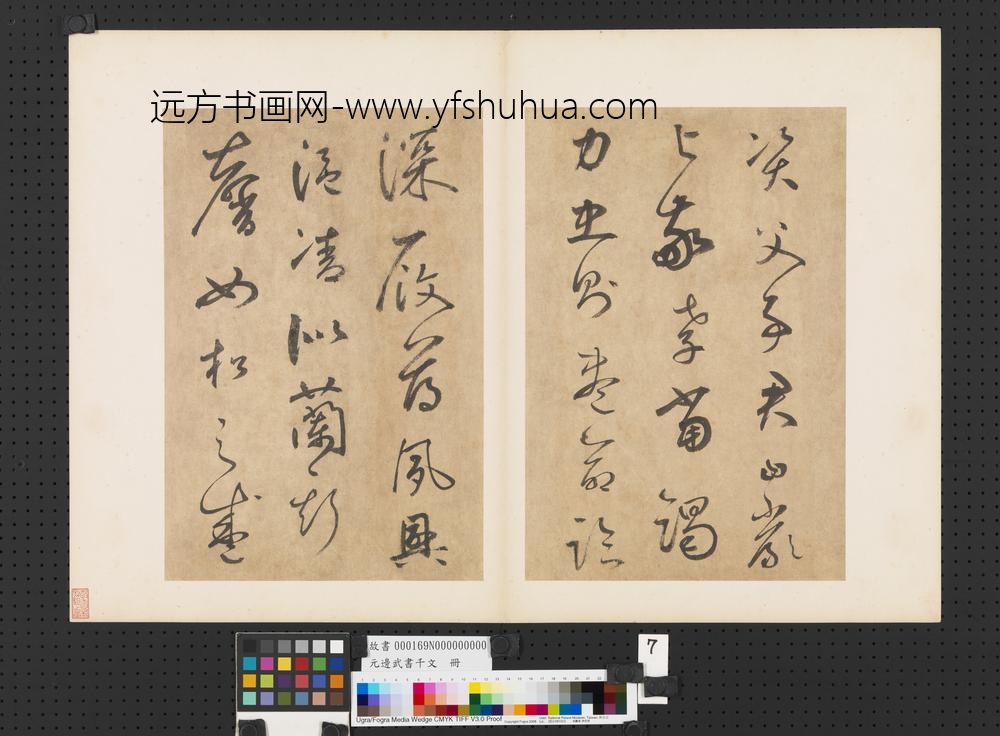 远方书画网-www.yfshuhua.com
资父事君曰严
与敬孝当竭
力忠则尽命临
深履薄夙兴
温凊似兰斯
馨如松之盛
故書 000169N000000000
元邊武書千文 冊
7
Ugra/Fogra Media Wedge CMYK TIFF V3.0 Proof